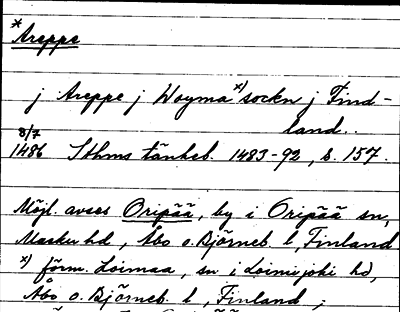 *Areppe
j Areppe j Woyma x) sockn j Find-
land.
8/7
1486 Sthms tänkeb. 1483-92, s. 157.
Möjl. avses Oripää, by i Oripää sn,
Masku hd, Åbo o. Björneb. l, Finland
x) förm. Loimaa, sn i Loimijoki hd,
Åbo o. Björneb. l, Finland;